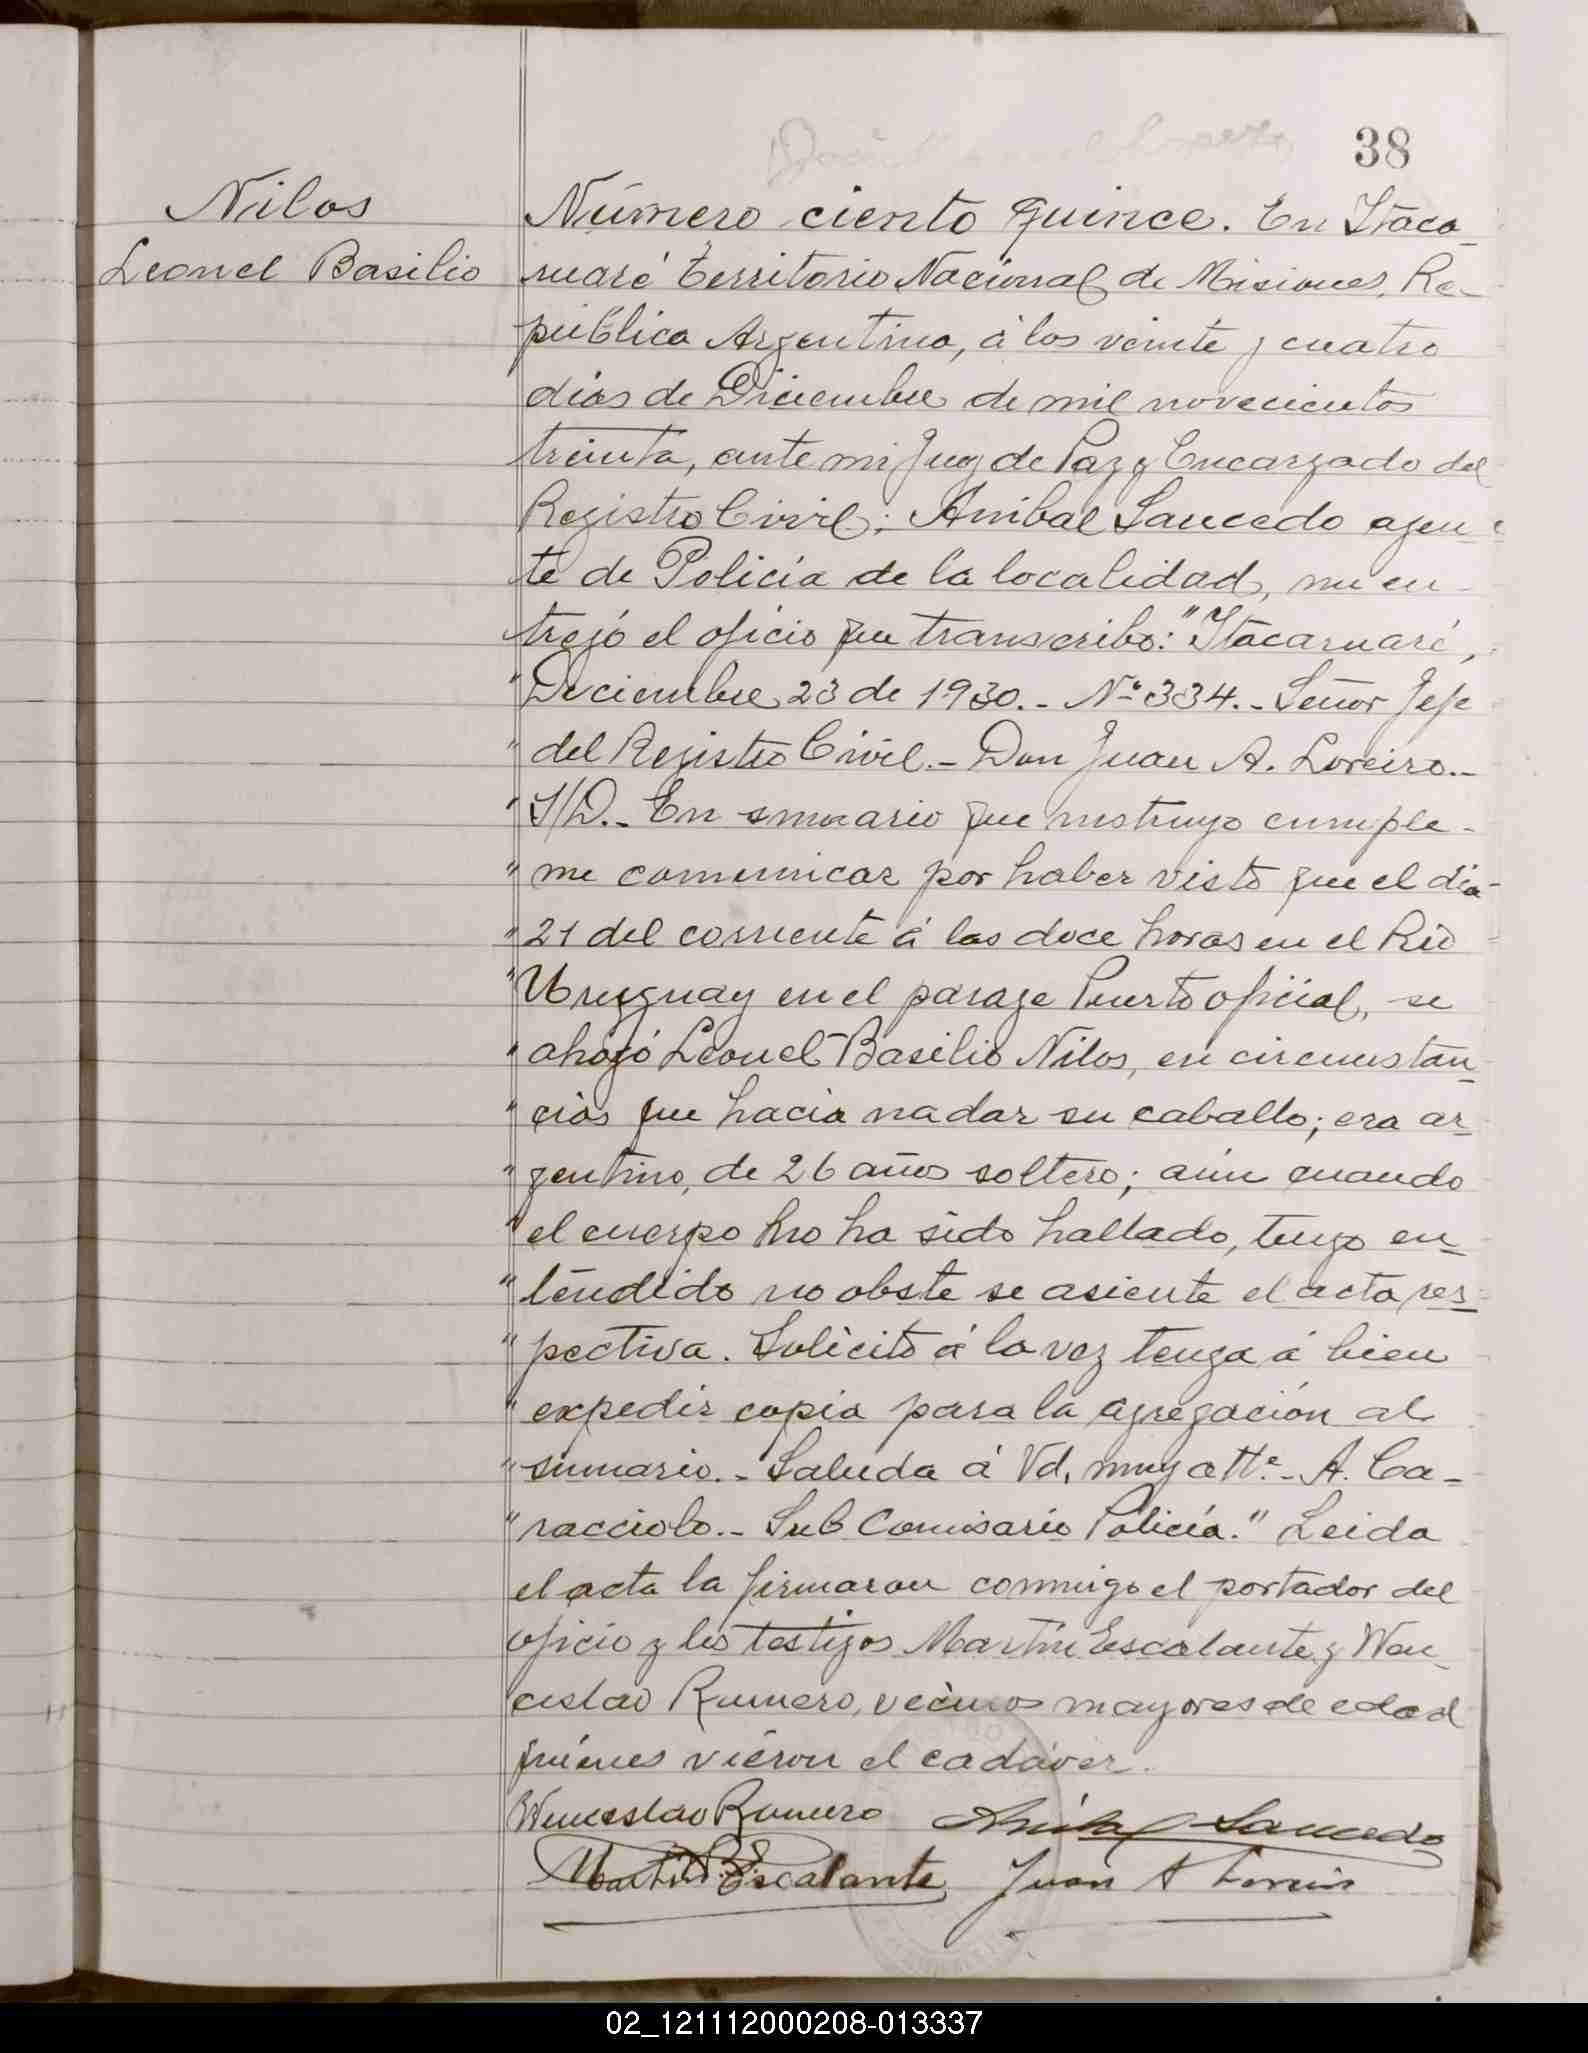 38
Nilos
Leonel Basilio
Número ciento quince. En Itaca-
ruaré territorio Nacional de Misiones, Re-
pública Argentina, á los veinte y cuatro
dias de Diciembre de mil novecientos
treinta, ante mi Juez de Paz y Encargado del
Registro Civil; Anibal Saucedo agen-
te de Policia de la localidad, me en-
tregó el oficio que transcribo: "Itacaruaré,
" Diciembre 23 de 1930.- Nº 334.- Señor Jefe
" del Registro Civil.- Don Juan A. Loreiro.-
" S/D.- En sumario que instruyo cumple-
" me comunicar por haber visto que el dia
" 21 del corriente á las doce horas en el Rio
" Uruguay en el paraje Puerto oficial, se
" ahogó Leonel Basilio Nilos, en circunstan-
" cias que hacia nadar su caballo; era ar-
" gentino, de 26 años soltero; aún cuando
" el cuerpo no ha sido hallado, tengo en-
" tendido no obste se asiente el acta res-
" pectiva. Solicito á la vez tenga á bien
" expedir copia para la agregación al
" sumario.- Saluda á Vd. muy attº.- A. Ca-
" racciolo.- Sub Comisario Policía." Leida
el acta la firmaron conmigo el portador del
oficio y los testigos Martín Escalante y Wen-
ceslao Romero, vecinos mayores de edad
quienes vieron el cadáver.
Wenceslao Romero Anibal Saucedo
Martin Escalante Juan A Loreiro
02_121112000208-013337